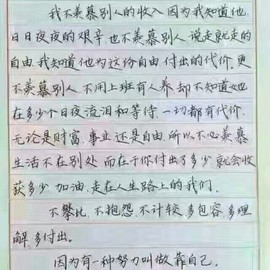 我不羡慕别人的收入 因为我知道他
日日夜夜的艰辛 也不羡慕别人 说走就走的
自由 我知道他为这份自由 付出的代价 更
不羡慕别人 不用上班有人养 却不知道她
在多少个日夜流泪和等待 一切都有代价.
无论是财富 事业 还是自由 所以不必羡慕
生活不在别处 而在于你付出了多少 就会收
获多少 加油 走在人生路上的我们.
不攀比 不抱怨 不计较 多包容 多理
解 多付出.
因为有一种努力叫做 靠自己.